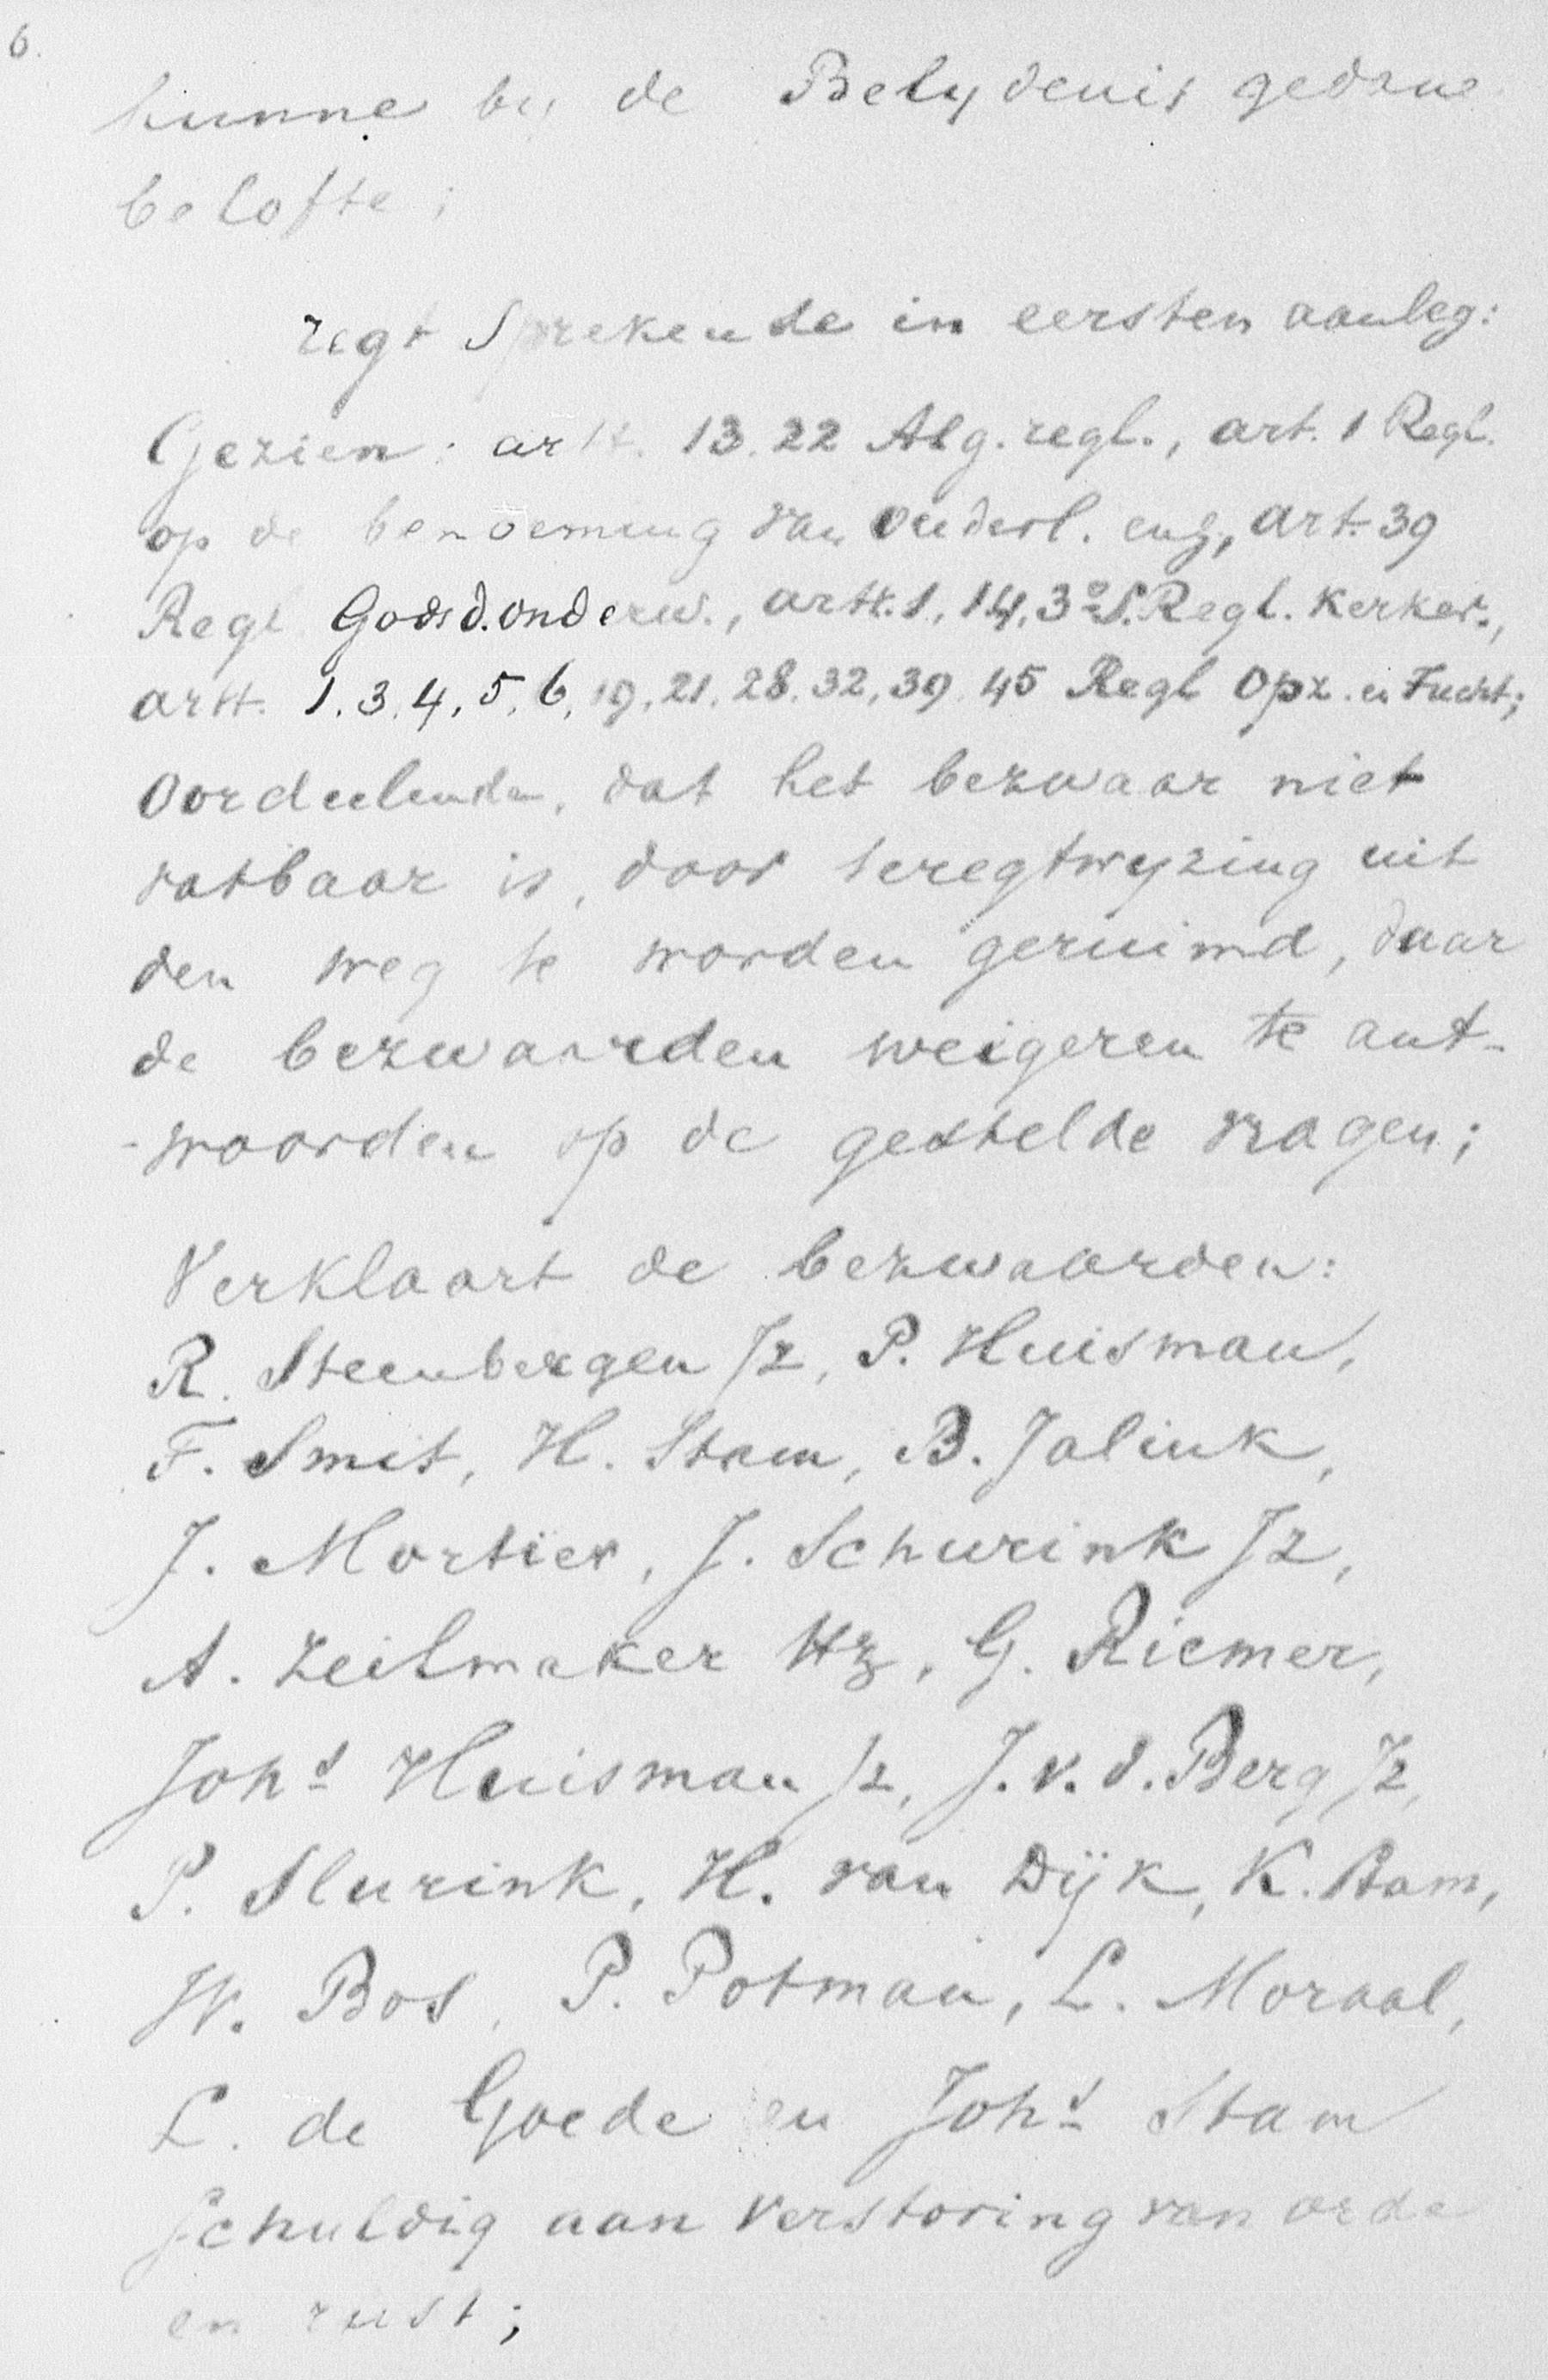 6.
hunne by de Belydenis gedane
belofte;
regt Sprekende in eersten aanleg:
Gezien: artt. 13. 22 Alg. regl., art. 1 Regl.
op de benoeming van ouderl. enz, art. 39
Regl. Godsd. onderw., artt. 1, 14, 3º S. Regl. Kerker.,
artt. 1. 3. 4, 5, 6, 19, 21, 28. 32, 39. 45 Regl Opz. en Tucht;
Oordeelende, dat het bezwaar niet
vatbaar is, door teregtwyzing uit
den weg te worden geruimd, daar
de bezwaarden weigeren te ant-
-woorden op de gestelde vragen;
Verklaart de bezwaarden:
R. Steenbergen Jz, P. Huisman,
F. Smit, H. Stam, B. Jalink,
J. Mortier, J. Schurink Jz,
A. Zeilmaker Hz, G. Riemer,
Johs Huisman Jz, J. v. d. Berg Jz,
P. Slurink, H. van Dijk, K. Bam,
W. Bos, P. Potman, L. Moraal,
L. de Goede en Johs Stam
schuldig aan verstoring van orde
en rust;